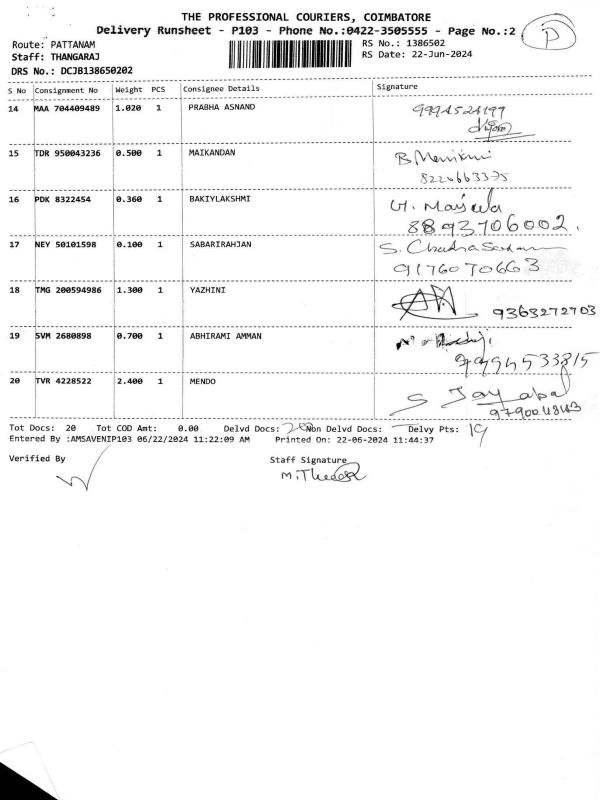 THE PROFESSIONAL COURIERS, COIMBATORE
Delivery Runsheet - P103 - Phone No.:0422-3505555 - Page No.:2 P
Route: PATTANAM
RS No.: 1386502
Staff: THANGARAJ
RS Date: 22-Jun-2024
DRS No.: DCJB138650202
S No Consignment No Weight PCS Consignee Details Signature
14 MAA 704409489 1.020 1 PRABHA ASNAND
15 TDR 950043236 0.500 1 MAIKANDAN B.
16 PDK 8322454 0.360 1 BAKIYLAKSHMI
8893706002.
17 NEY 50101598 0.100 1 SABARIRAHJAN S.
9176070663
18 TMG 200594986 1.300 1 YAZHINI
9363272703
19 SVM 2680898 0.700 1 ABHIRAMI AMMAN
20 TVR 4228522 2.400 1 MENDO
S Jayabal
Tot Docs: 20 Tot COD Amt: 0.00 Delvd Docs: Non Delvd Docs: Delvy Pts: 19
Entered By :AMSAVENIP103 06/22/2024 11:22:09 AM Printed On: 22-06-2024 11:44:37
Verified By Staff Signature